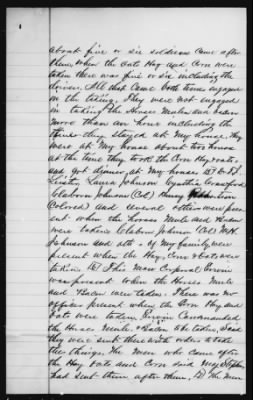 about five or six soldiers came after
them, when the oats Hay and Corn were
taken there was five or six including the
driver. All that came both times engaged
in the taking. They were not engaged
in taking the Horses Mule and Bacon
more than an hour including the
time they stayed at my house, they
were at my house about two hours
at the time they took the Corn Hay & oats,
and got dinner at my house
Laura Johnson Cynthia Crawford
Claborn Johnson (Col) Henry
Colored) and several others were pres
ent when the horses Mule and Bacon
were taken Claborn Johnson (Col) M.H.
Johnson and all of my family were
present when the Hay, Corn & oats were
taken. This man Corporal Erwin
was present when the Horses Mule
and Bacon were taken. There was no
officer present when the Corn Hay and
oats were taken, Erwin Commanded
the Horses Mule & Bacon to be taken, Said
they were sent there with orders to take
the things. The men who came after
the Hay oats and Corn said Maj Stephens
had sent them after them. The men